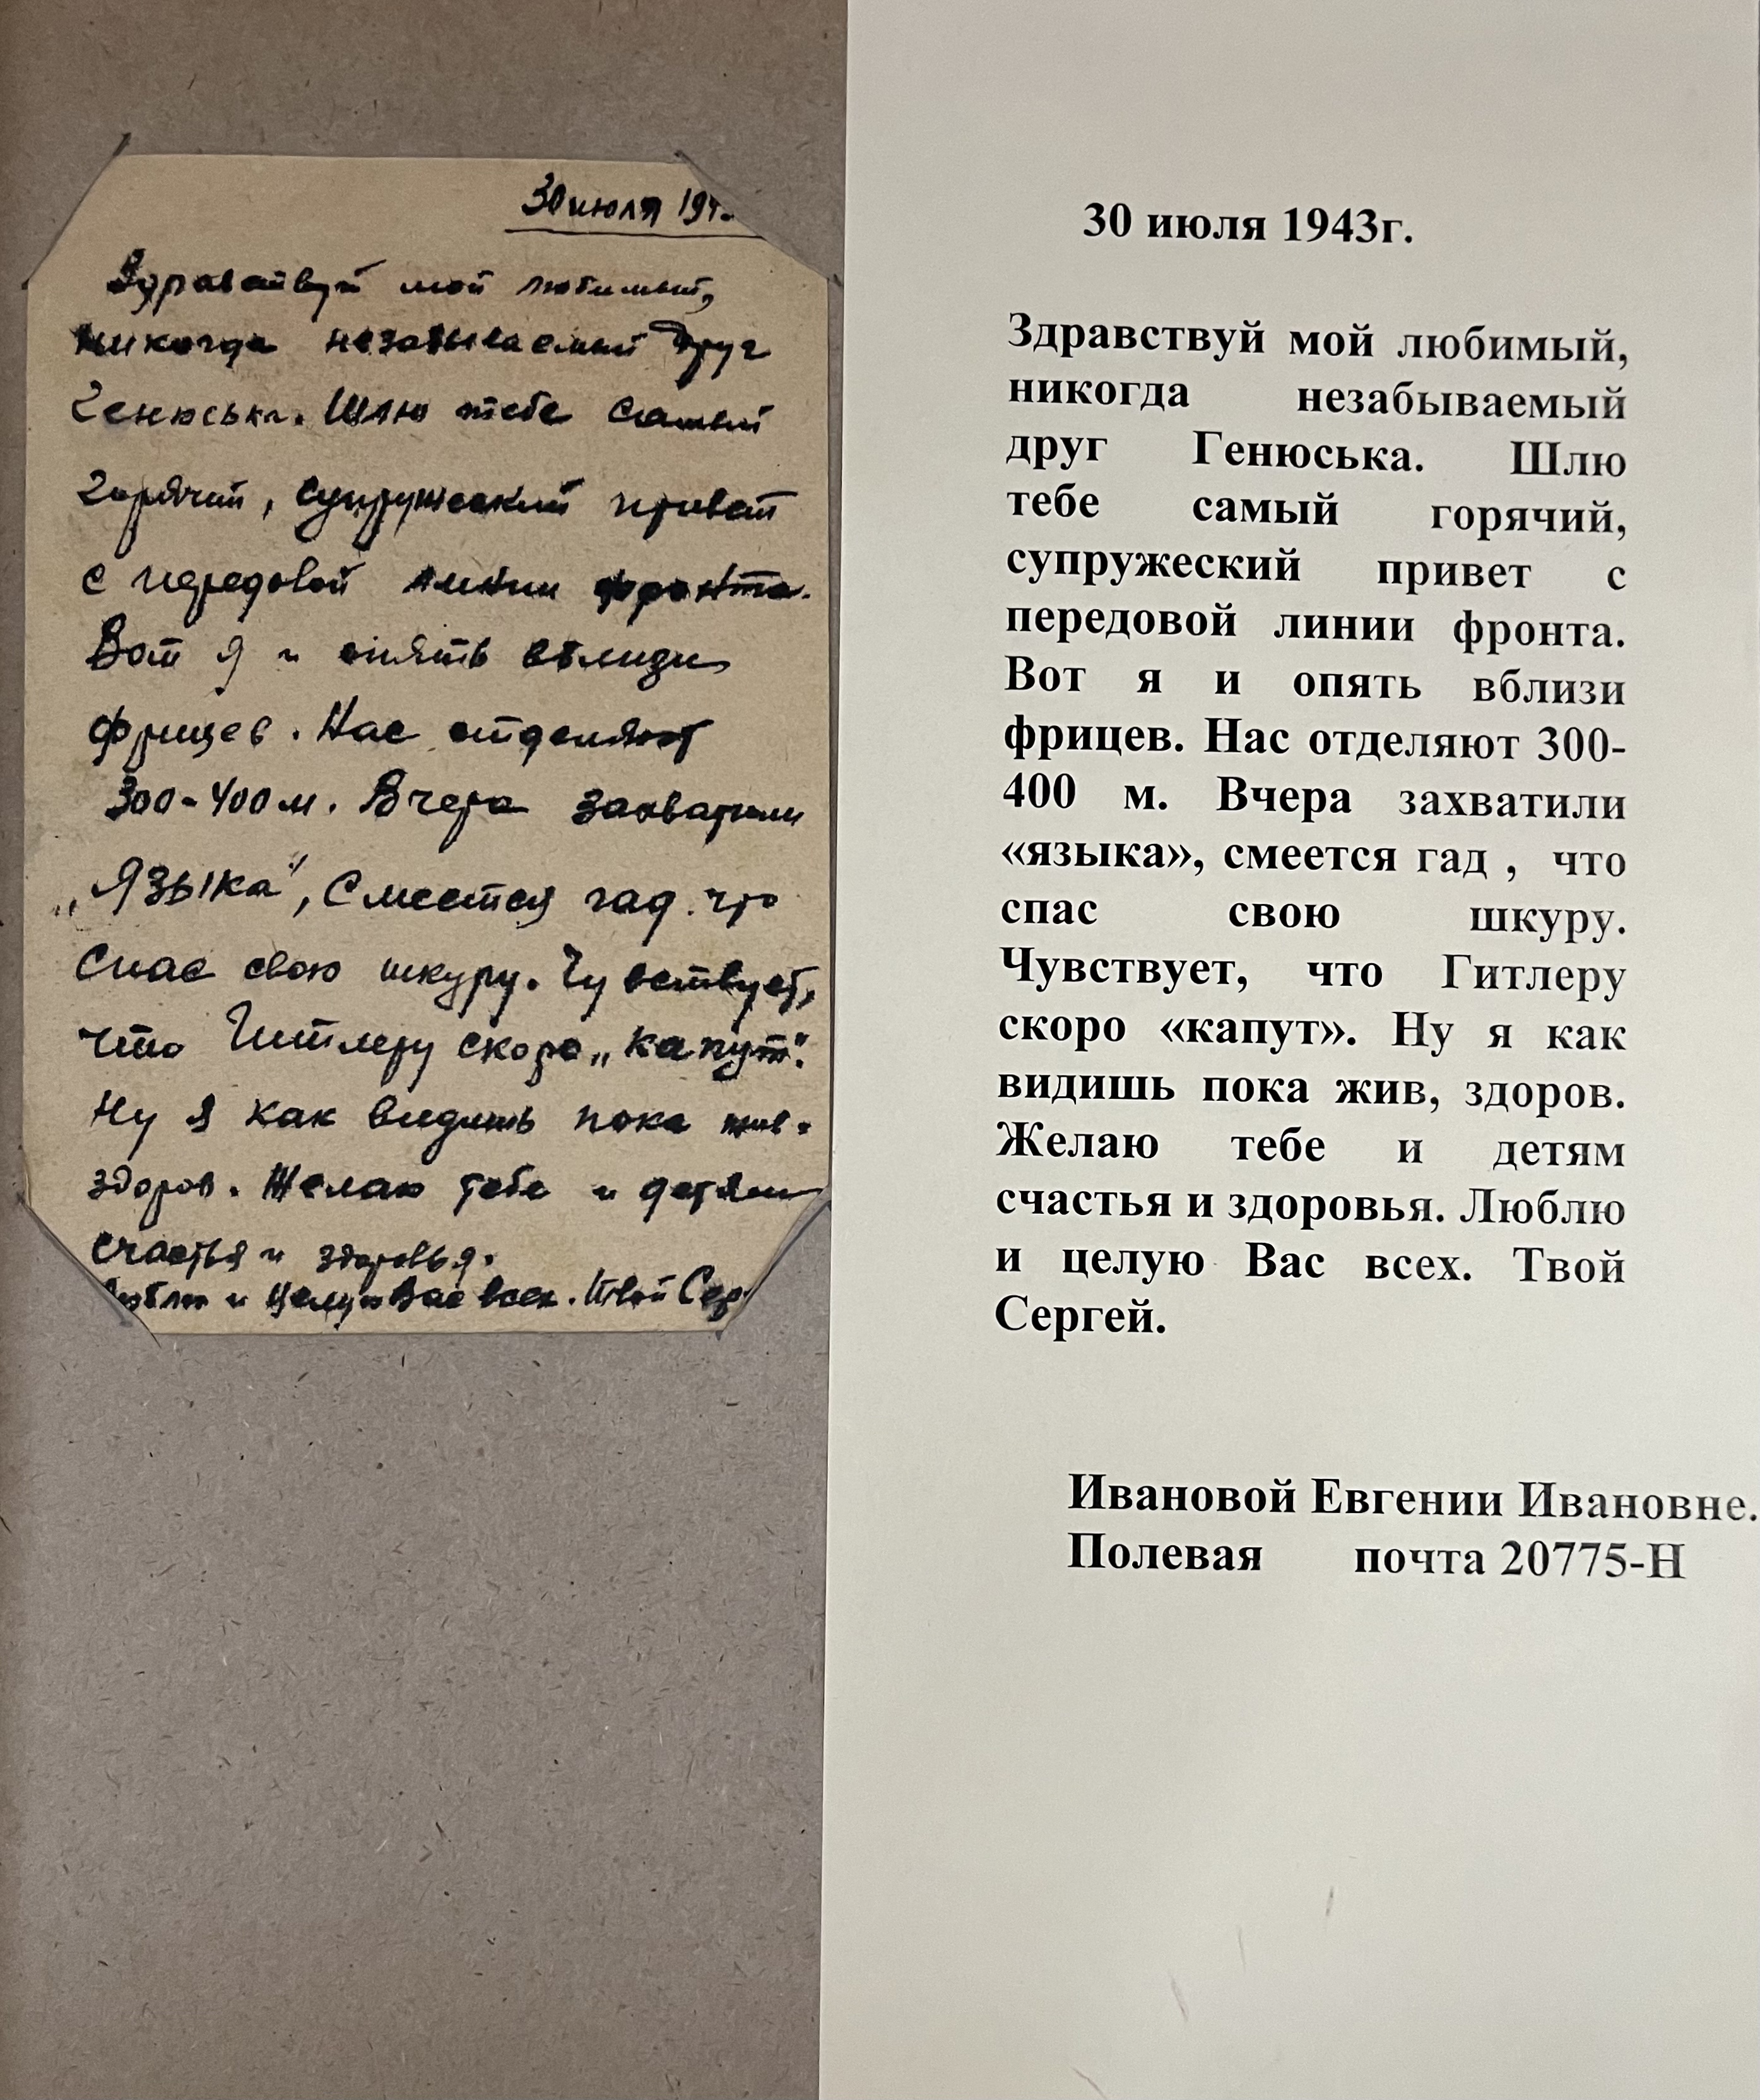 30 июля 194
Здравствуй мой любимый,
никогда незабываемый друг
Генюська. Шлю тебе самый
горячий, супружеский привет
с передовой линии фронта.
Вот я и опять вблизи
фрицев. Нас отделяют
300-400 м. Вчера захватили
„Языка", смеется гад. что
спас свою шкуру. Чувствует,
что Гитлеру скоро „капут".
Ну я как видишь пока жив.
здоров. Желаю тебе и детям
счастья и здоровья.
Люблю и целую Вас всех. Твой Сер
30 июля 1943г.
Здравствуй мой любимый,
никогда незабываемый
друг Генюська. Шлю
тебе самый горячий,
супружеский привет с
передовой линии фронта.
Вот я и опять вблизи
фрицев. Нас отделяют 300-
400 м. Вчера захватили
«языка», смеется гад , что
спас свою шкуру.
Чувствует, что Гитлеру
скоро «капут». Ну я как
видишь пока жив, здоров.
Желаю тебе и детям
счастья и здоровья. Люблю
и целую Вас всех. Твой
Сергей.
Ивановой Евгении Ивановне.
Полевая почта 20775-Н